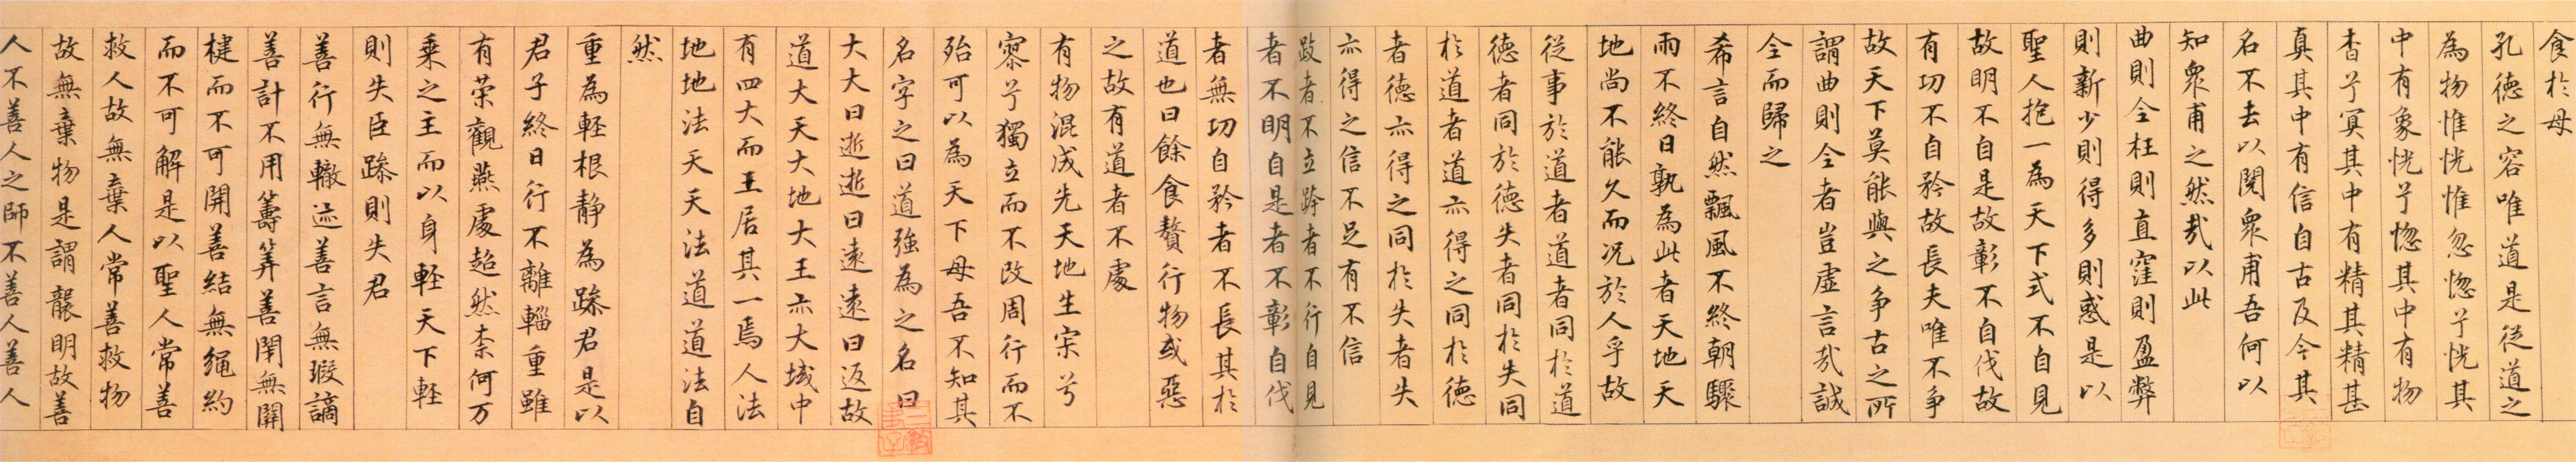 食於母
孔德之容唯道是從道之
為物惟恍惟忽惚兮恍其
中有象恍兮惚其中有物
杳兮冥其中有精其精甚
真其中有信自古及今其
名不去以閱衆甫吾何以
知衆甫之然哉以此
曲則全枉則直窪則盈弊
則新少則得多則惑是以
聖人抱一為天下式不自見
故明不自是故彰不自伐故
有功不自矜故長夫唯不争
故天下莫能與之争古之所
謂曲則全者豈虛言哉誠
全而歸之
希言自然飄風不終朝驟
雨不終日孰為此者天地天
地尚不能久而況於人乎故
從事於道者道者同於道
德者同於德失者同於失同
於道者道亦得之同於德
者德亦得之同於失者失
亦得之信不足有不信
跂者不立跨者不行自見
者不明自是者不彰自伐
者無功自矜者不長其於
道也曰餘食贅行物或惡
之故有道者不處
有物混成先天地生宋兮
寥兮獨立而不改周行而不
殆可以為天下母吾不知其
名字之曰道強為之名曰
大大曰逝逝曰遠遠曰返故
道大天大地大王亦大域中
有四大而王居其一焉人法
地地法天天法道道法自
然
重為輕根静為躁君是以
君子終日行不離輜重雖
有荣觀燕處超然柰何万
乗之主而以身輕天下輕
則失臣躁則失君
善行無轍迹善言無瑕謫
善計不用籌筭善閉無關
楗而不可開善結無繩約
而不可解是以聖人常善
救人故無棄人常善救物
故無棄物是謂襲明故善
人不善人之師不善人善人